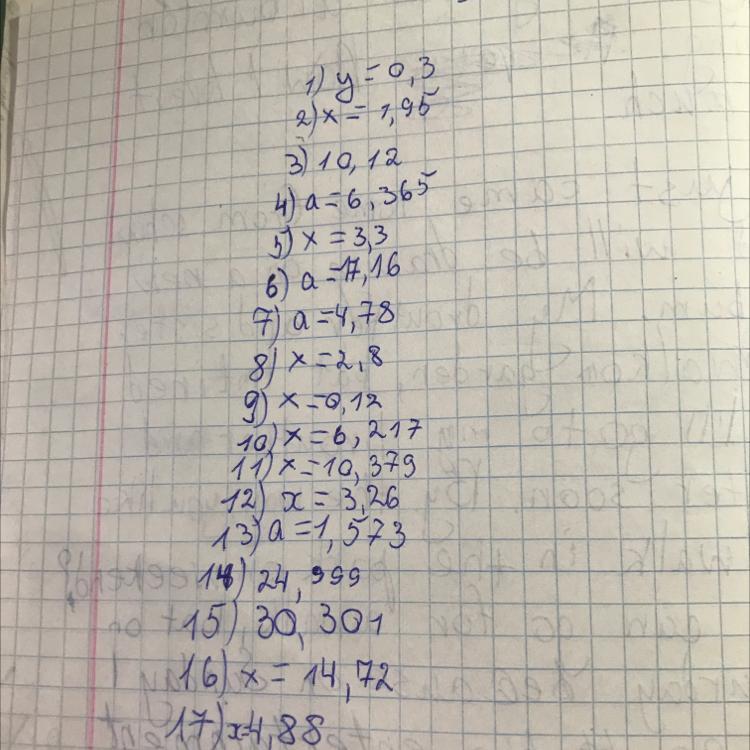 1) y = 0,3
2) x = 1,95
3) 10,12
4) a = 6,365
5) x = 3,3
6) a = 17,16
7) a = 4,78
8) x = 2,8
9) x = 0,12
10) x = 6,217
11) x = 10,379
12) x = 3,26
13) a = 1,573
14) 24,999
15) 30,301
16) x = 14,72
17) x=4,88